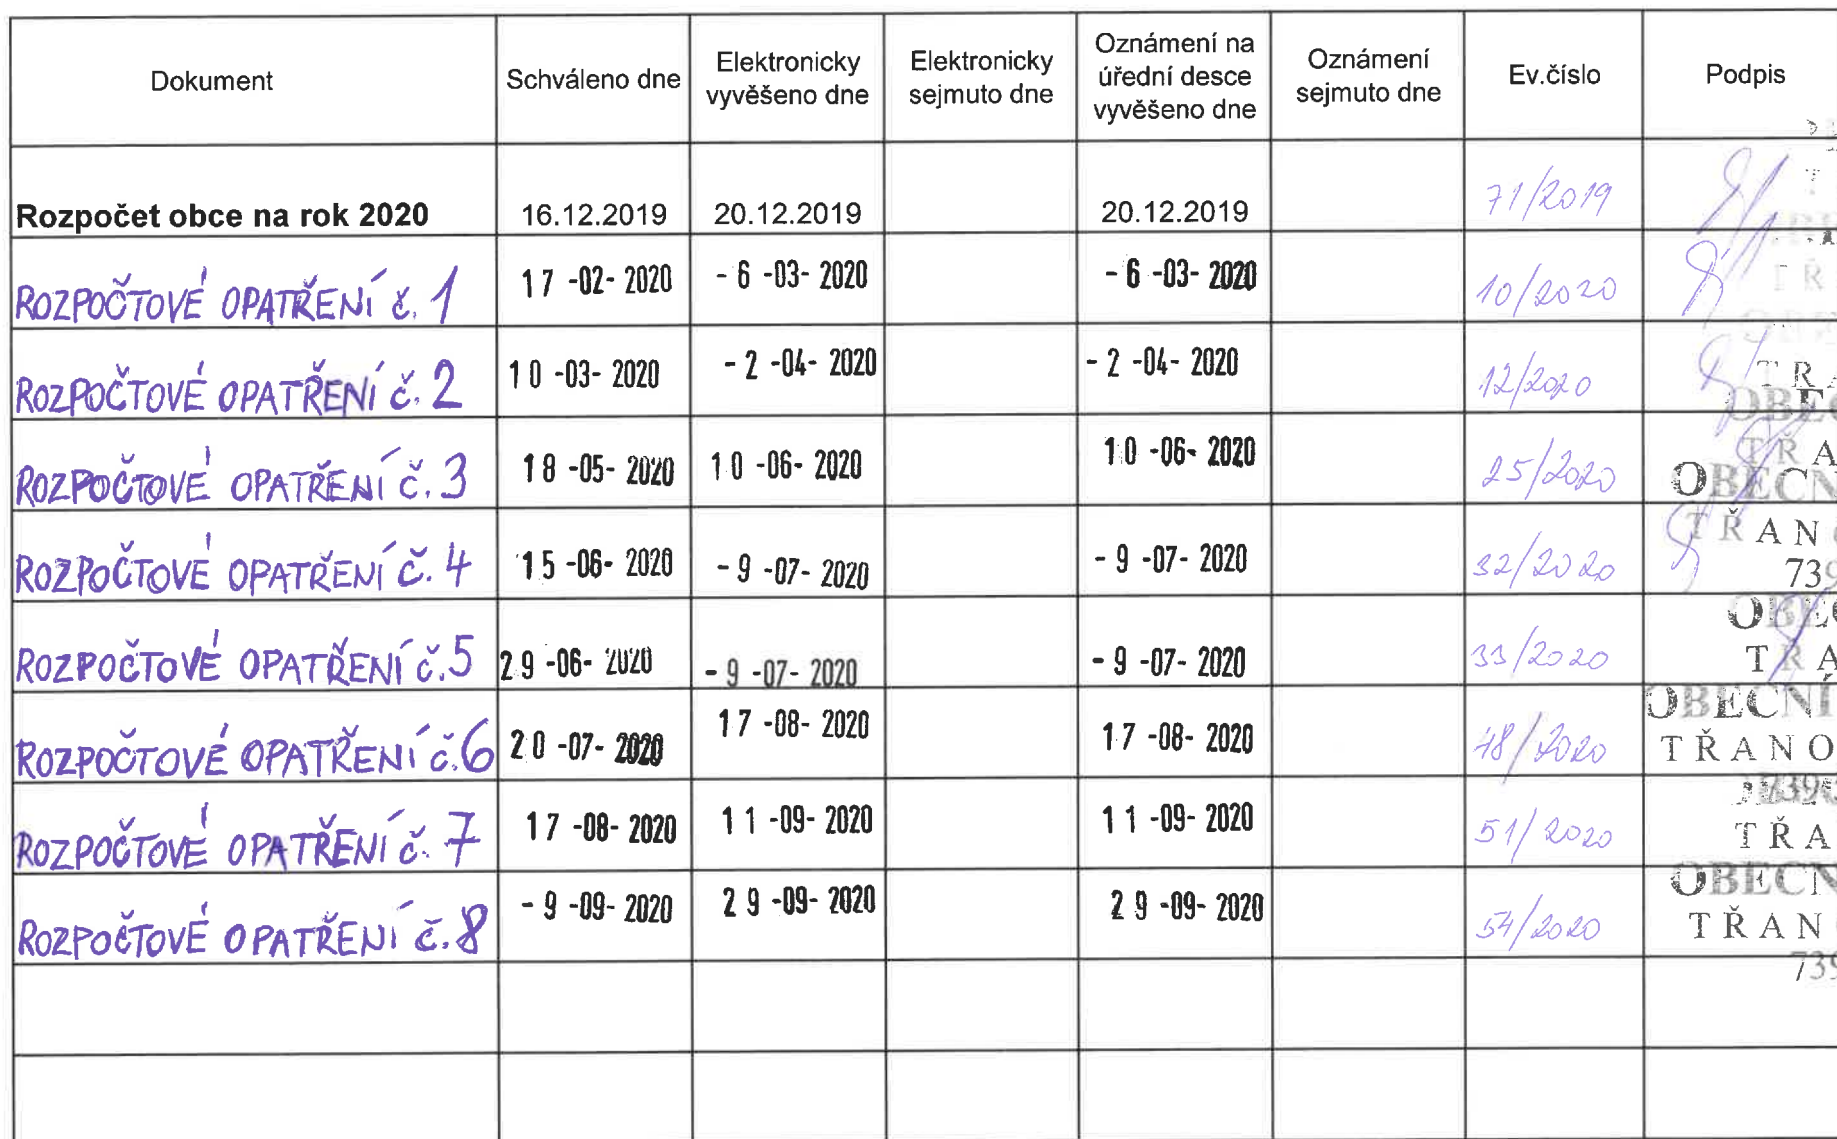 Dokument Schváleno dne Elektronicky vyvěšeno dne Elektronicky sejmuto dne Oznámení na úřední desce vyvěšeno dne Oznámení sejmuto dne Ev.číslo Podpis
Rozpočet obce na rok 2020 16.12.2019 20.12.2019 20.12.2019 71/2019
ROZPOČTOVÉ OPATŘENÍ č. 1 17 -02- 2020 - 6 -03- 2020 - 6 -03- 2020 10/2020
ROZPOČTOVÉ OPATŘENÍ č. 2 10 -03- 2020 - 2 -04- 2020 - 2 -04- 2020 12/2020
ROZPOČTOVÉ OPATŘENÍ č. 3 18 -05- 2020 10 -06- 2020 10 -06- 2020 25/2020
ROZPOČTOVÉ OPATŘENÍ č. 4 15 -06- 2020 - 9 -07- 2020 - 9 -07- 2020 32/2020
ROZPOČTOVÉ OPATŘENÍ č. 5 29 -06- 2020 - 9 -07- 2020 - 9 -07- 2020 33/2020
ROZPOČTOVÉ OPATŘENÍ č. 6 20 -07- 2020 17 -08- 2020 17 -08- 2020 48/2020
OBECNÍ
TŘANO
ROZPOČTOVÉ OPATŘENÍ č. 7 17 -08- 2020 11 -09- 2020 11 -09- 2020 51/2020
TŘA
ROZPOČTOVÉ OPATŘENÍ č. 8 - 9 -09- 2020 29 -09- 2020 29 -09- 2020 54/2020
OBECN
TŘAN
739